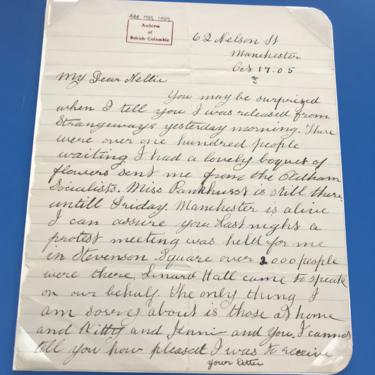 Archives
of
British Columbia
62 Nelson St
Manchester
Oct 17.05
My Dear Nellie
You may be surprized
when I tell you I was released from
Strangeways yesterday morning. There
were over one hundred people
waiting I had a lovely boquet of
flowers sent me from the Oldham
Socialists. Miss Pankhurst is still there
untill Friday. Manchester is alive
I can assure you. Last night a
protest meeting was held for me
in Stevenson Square over 2000 people
were there. Hall came to speak
on our behalf. The only thing I
am sorey about is those at home
and Kitty and Jennie and you. I cannot
tell you how pleased I was to receive
your letter